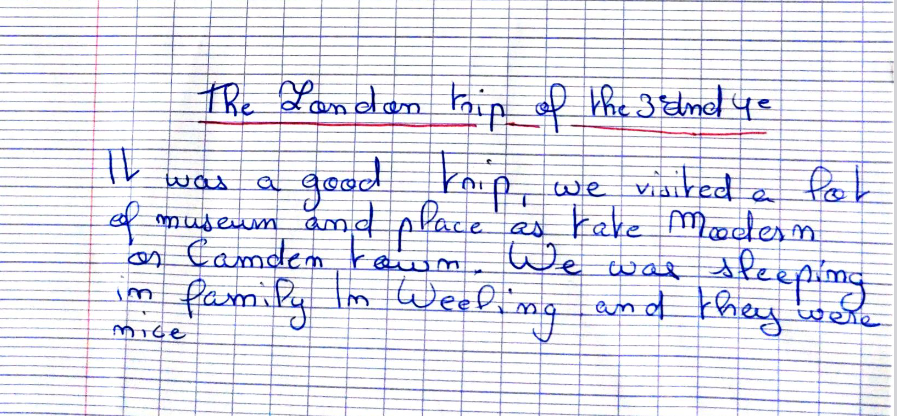 The London trip of the 3e and 4e
It was a good trip, we visited a lot
of museum and place as tate Modern
or Camdem town. We was sleeping
in family In Weeling and they were
nice